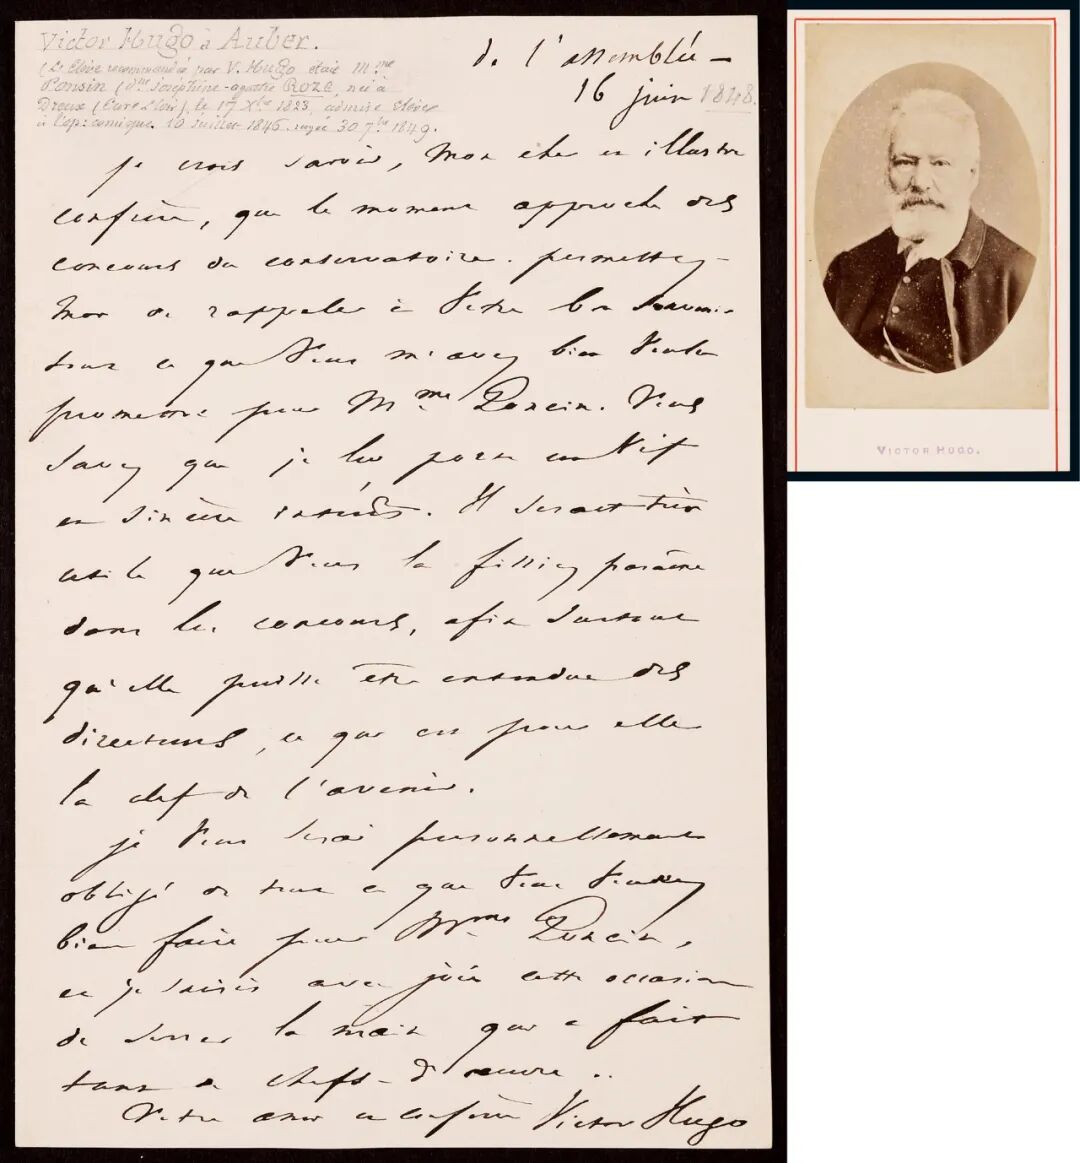 Victor Hugo à Auber.
(L'Elève recommandée par V. Hugo était Mme
Ponsin (dlle Joséphine-agathe ROZE, née à
Dreux (Eure & Loir), le 17 Xbre 1823, admise Elève
à l'op: comique. 10 Juillet 1846. rayée 30 7bre 1849.
de l'assemblée —
16 juin 1848.
je crois savoir, mon cher et illustre
confrère, que le moment approche des
concours du conservatoire. permettez-
moi de rappeler à votre bon souvenir
tout ce que vous m'avez bien voulu
promettre pour Mme Poncin. Vous
savez que je lui porte un vif
et sincère intérêt. Il serait très
utile que vous la fissiez paraître
dans les concours, afin surtout
qu'elle puisse être entendue des
directeurs, ce qui est pour elle
la clef de l'avenir.
je vous serai personnellement
obligé de tout ce que vous voudrez
bien faire pour Mme Poncin,
et je saisis avec joie cette occasion
de serrer la main qui a fait
tant de chefs-d'œuvre..
Votre ami et confrère Victor Hugo
VICTOR HUGO.